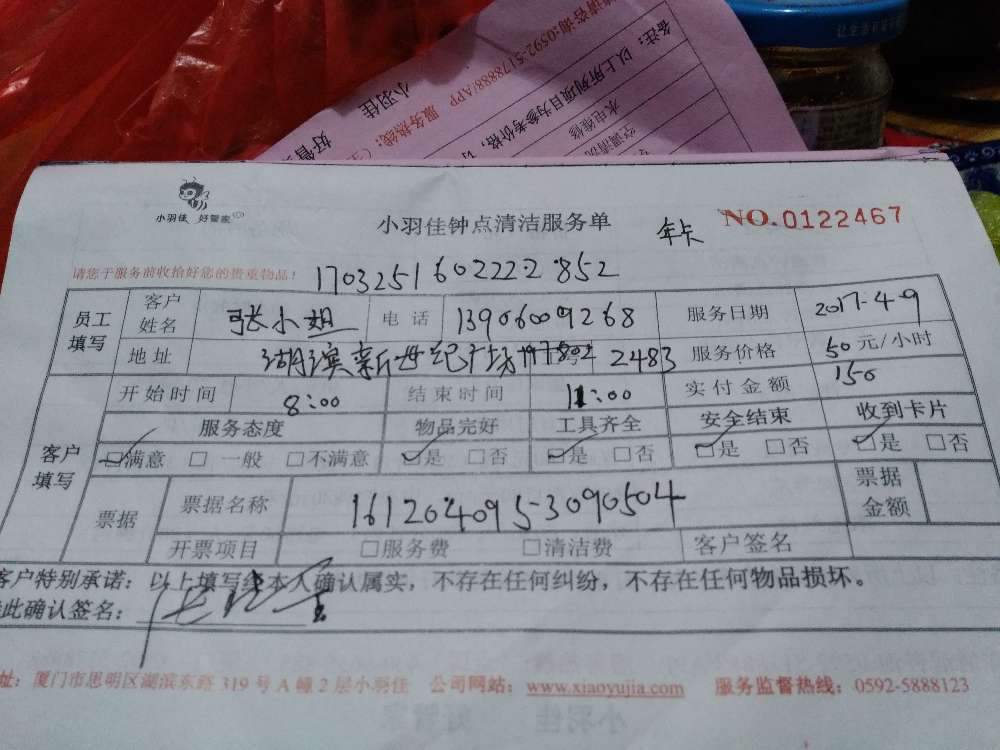 请咨询:0592-5178888/APP
备注：以上所列项目为参考价格
服务热线：
水电维修
空调清洗
小羽佳
好管
小羽佳 好管家
小羽佳钟点清洁服务单
年卡
NO.0122467
请您于服务前收拾好您的贵重物品！
1703251602222852
员工填写
客户姓名 张小姐 电话 13906009268 服务日期 2017-4-9
地址 湖滨新世纪广场 2483 服务价格 50元/小时
开始时间 8:00 结束时间 11:00 实付金额 150
客户填写
服务态度 物品完好 工具齐全 安全结束 收到卡片
☑满意 □一般 □不满意 ☑是 □否 ☑是 □否 ☑是 □否 ☑是 □否
票据 票据名称 161204095-3090504 票据金额
开票项目 □服务费 □清洁费 客户签名
客户特别承诺：以上填写经本人确认属实，不存在任何纠纷，不存在任何物品损坏。
此确认签名：
址：厦门市思明区湖滨东路319号A幢2层小羽佳 公司网站：www.xiaoyujia.com 服务监督热线：0592-5888123